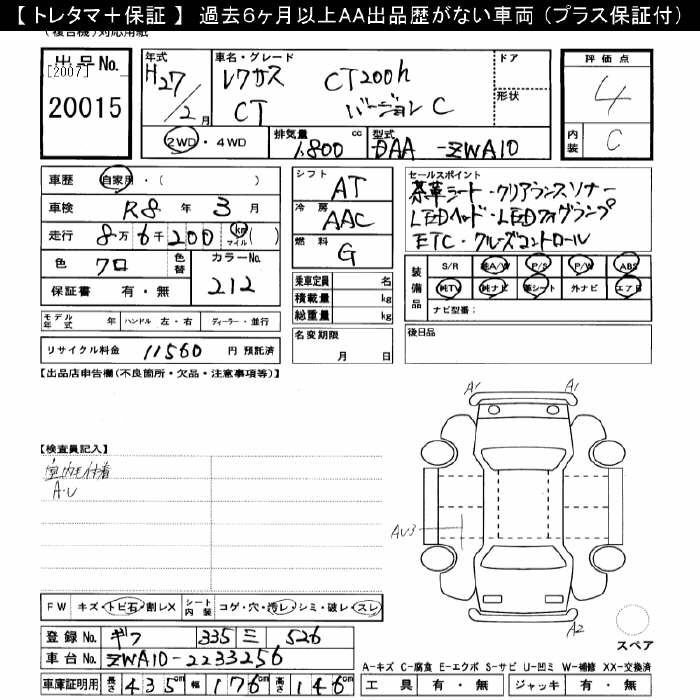 【 トレタマ＋保証 】 過去6ヶ月以上AA出品歴がない車両 (プラス保証付)
(複合機)対応用紙
出品No.
[2007]
20015
年式 H27/2月
車名・グレード
レクサス CT200h
CT バージョンC
ドア
形状
評価点
4
内装 C
2WD・4WD
排気量 1,800 cc
型式 DAA -ZWA10
車歴 自家用・( )
車検 R8年 3月
走行 8万6千200 km マイル ( )
色 クロ 色替
カラーNo. 212
保証書 有・無
モデル年式 年 ハンドル 左・右 ディーラー・並行
リサイクル料金 11560 円 預託済
シフト AT
冷房 AAC
燃料 G
乗車定員 名
積載量 kg
総重量 kg
名変期限
月 日
セールスポイント
茶革シート・クリアランスソナー
LEDヘッド・LEDフォグランプ
ETC・クルーズコントロール
装備品
S/R 純A/W P/S P/W ABS
純TV 純ナビ 革シート 外ナビ エアB
ナビ型番：
後日品
【出品店申告欄(不良箇所・欠品・注意事項等)】
【検査員記入】
室内毛付着
A・U
A1 A1
AU3
A2
スペア
FW キズ・トビ石・割レX
シート内装 コゲ・穴・汚レ・シミ・破レ・スレ
登録No. ギフ 335 ミ 526
車台No. ZWA10-2233256
車庫証明用 長さ 435cm 幅 176cm 高さ 146cm
A-キズ C-腐食 E-エクボ S-サビ U-凹ミ W-補修 XX-交換済
工具 有・無 ジャッキ 有・無